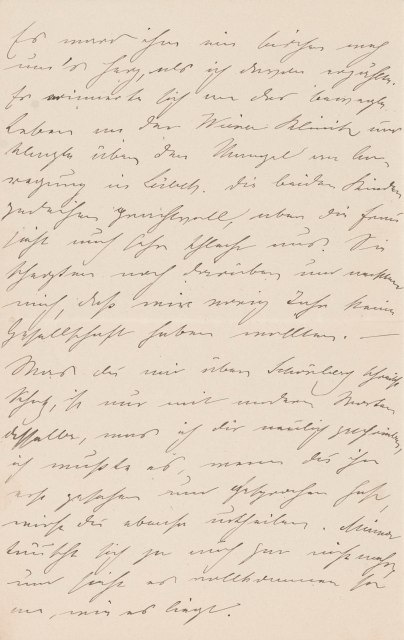 Es ward ihm ein bischen weh
um's Herz, als ich davon erzählte.
Er erinnerte sich an das bewegte
Leben an der Wiener Klinik und
klagte über den Mangel an An-
regung in Lübeck. Die beiden Kinder
gedeihen prachtvoll, aber die Frau
sieht noch sehr schlecht aus. Sie
scherzten noch darüber und neckten
mich, daß wir wenig Jahr keine
Gesellschaft haben wollten. —
Was du mir über Schönberg schreibst,
Schatz, ist nur mit andern Worten
dasselbe, was ich dir neulich geschrieben,
ich wußte es, wenn du ihn
erst gesehen und gesprochen hast,
wirst du ebenso urtheilen. Minna
täuscht sich ja auch gar nicht mehr,
und sieht es vollkommen so
an, wie es liegt.